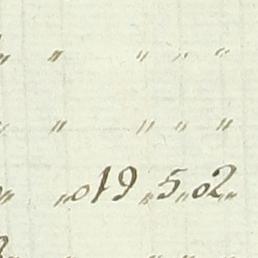 " " " " "
" " " " "
" „019„5„02„